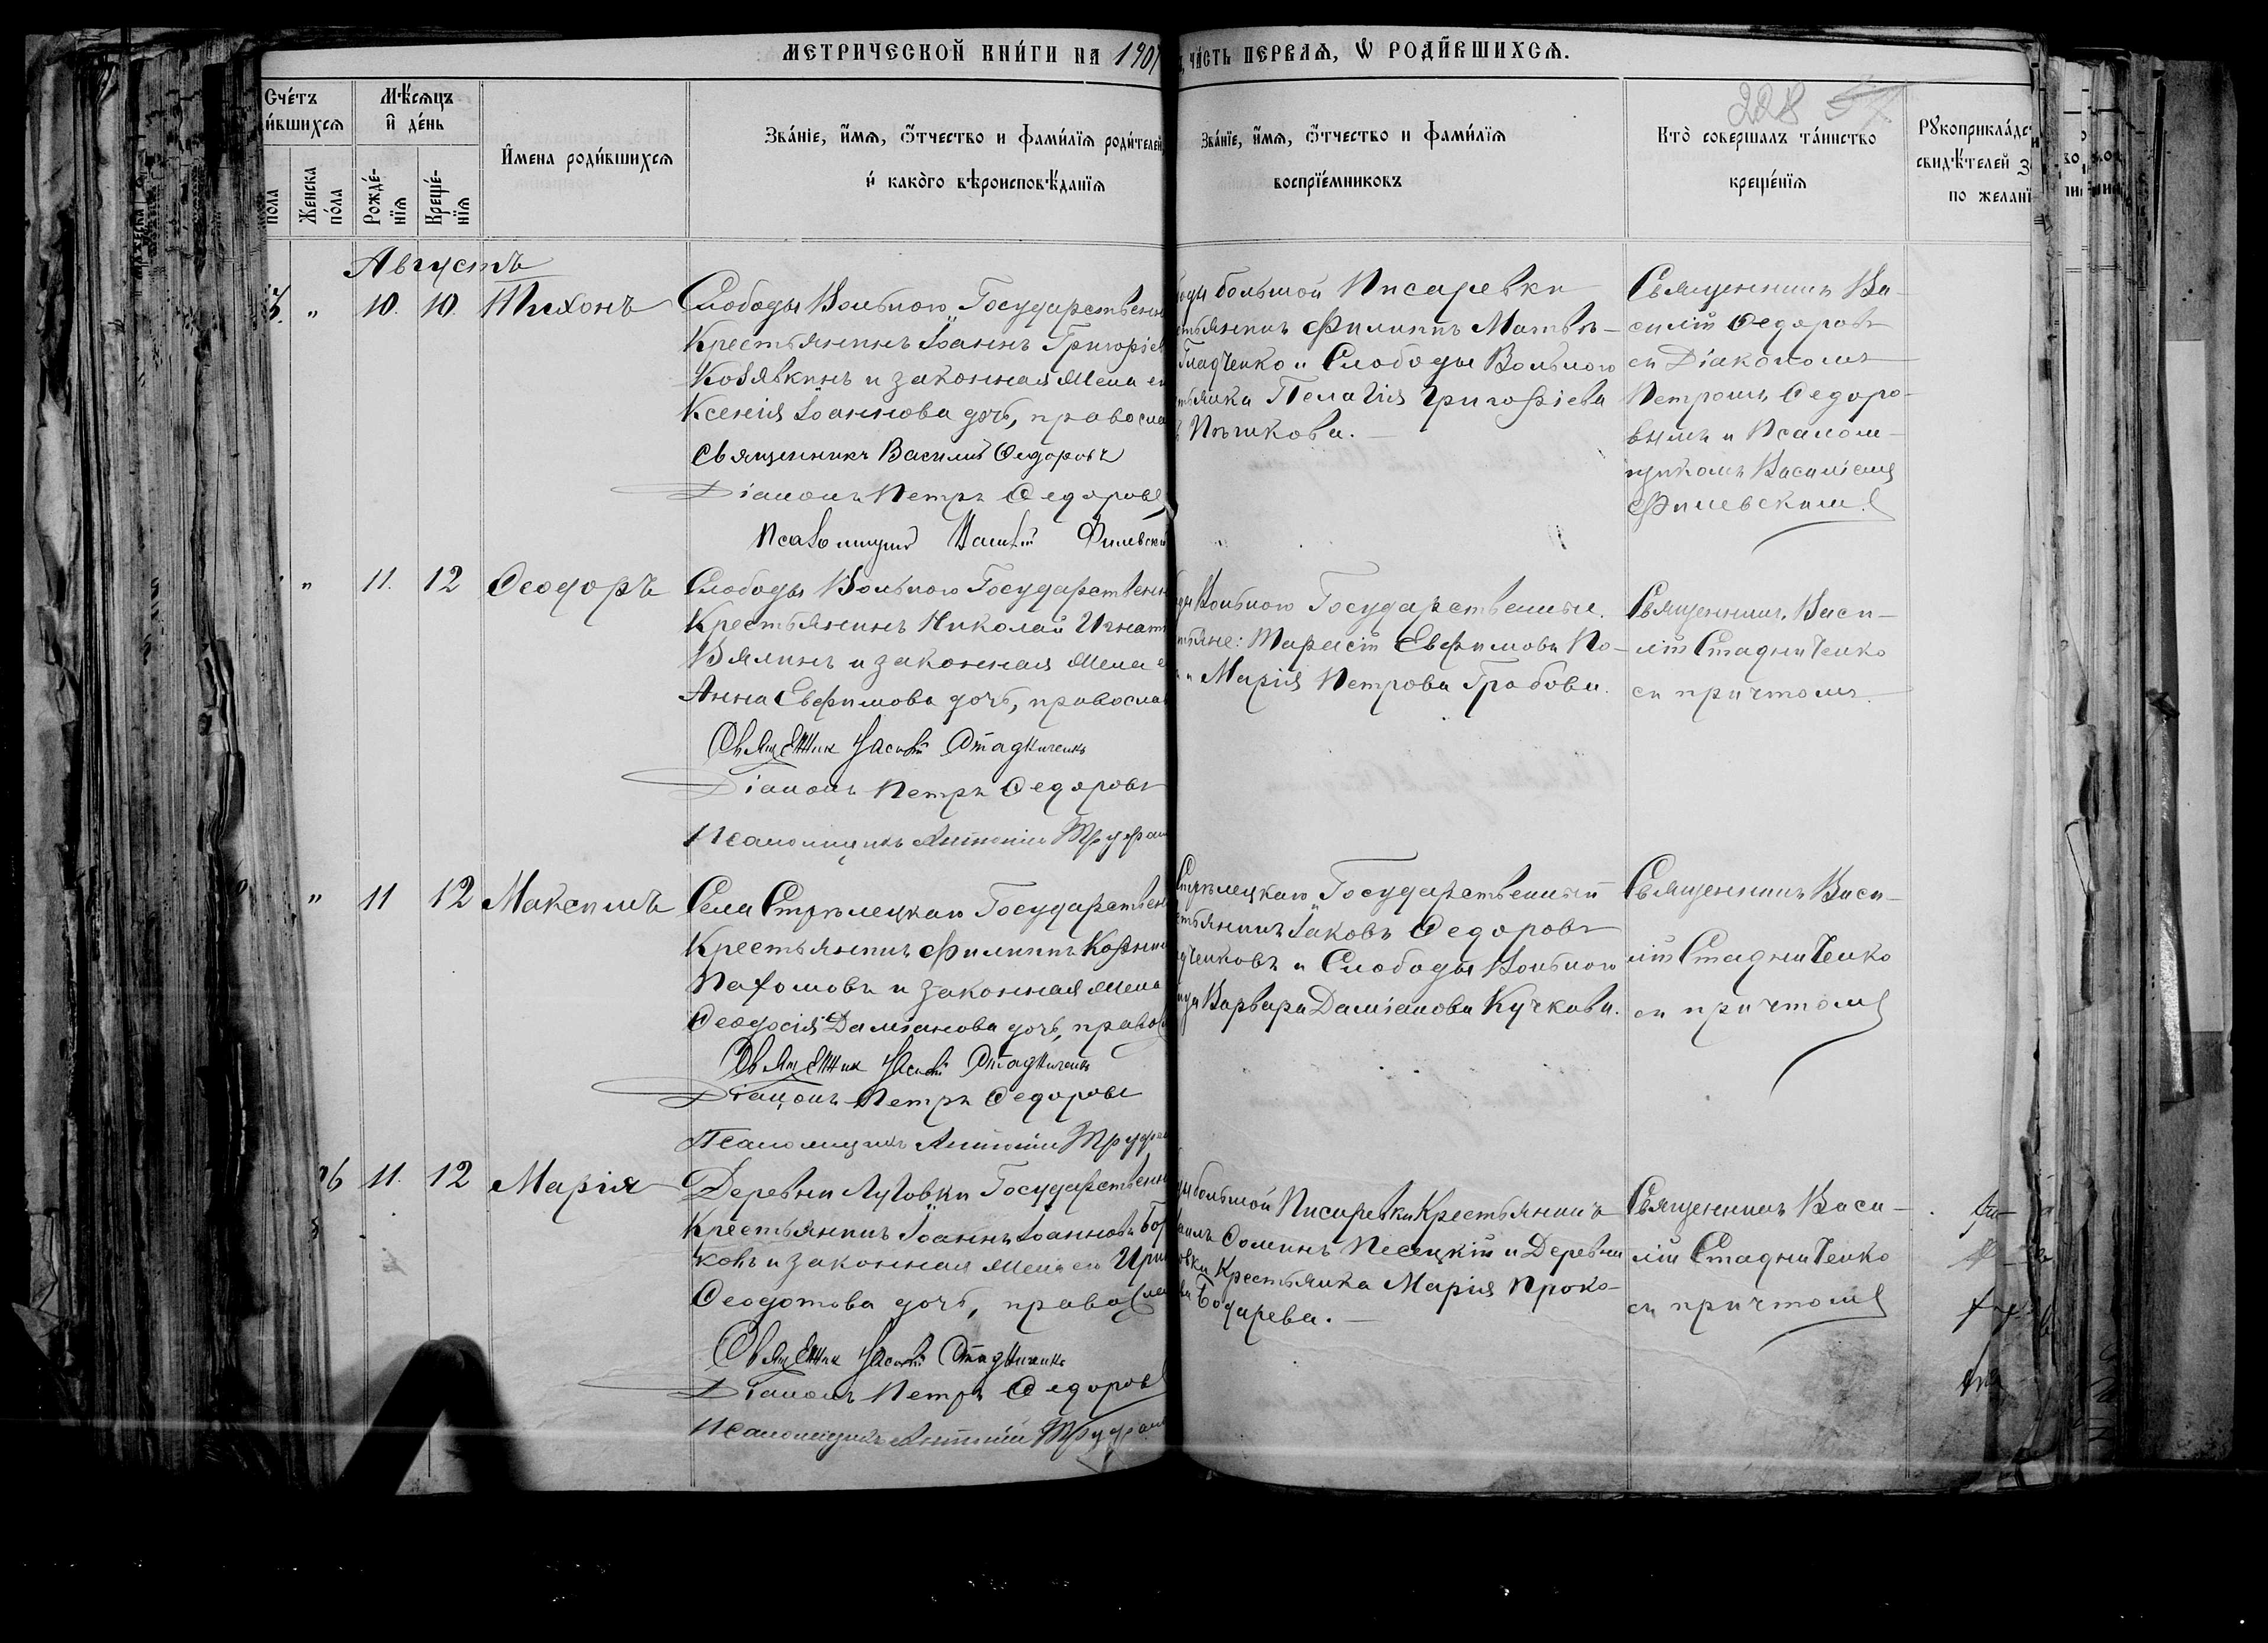 МЕТРИЧЕСКОЙ КНИ́ГИ НА 190
ЧА́СТЬ ПЕРВАѦ, Ѽ РОДИ́ВШИХСѦ.
228
Сче́тъ
и́вшихсѧ
Мѣ́сѧцъ
и҆ де́нь
И҆мена роди́вшихсѧ
Зва́нїе, и҆́мѧ, ѻ҆́тчество и фами́лїѧ роди́телей,
и҆ како́го вѣроисповѣ́данїѧ
Зва́нїе, и҆́мѧ, ѻ҆́тчество и фами́лїѧ
воспрїе́мниковъ
Кто̀ совершалъ та́инство
креще́нїѧ
Рꙋкоприкла́дс
свидѣ́телей з
по желанї
пола
Женска
по́ла
Рожде́-
нїѧ
Креще́-
нїѧ
Августъ
3. „ 10. 10. Тихонъ
Слободы Вольного Государствен
Крестьянинъ Іоаннъ Григорїев
Кобявкинъ и законная Жена ег
Ксенія Іоаннова дочь, правосла
Священникъ Василій Ѳедоровъ
Діаконъ Петръ Ѳедоровъ
Псаломщикъ Василій Филевскі
оды большой Писаревки
стьянинъ Филиппъ Матвѣ-
Гладченко и Слободы Вольного
тьянка Пелагія Григорїева
Пѣшкова.
Священникъ Ва-
силій Ѳедоровъ
съ Діакономъ
Петромъ Ѳедоро-
вымъ и Псалом-
щикомъ Василіемъ
Филевскимъ
„ 11. 12 Ѳеодоръ
Слободы Вольного Государственн
Крестьянинъ Николай Игнат
Вялинъ и законная Жена е
Анна Евфимова дочь, правосла
Священник Василій Стадниченко
Діаконъ Петръ Ѳедоровъ
Псаломщикъ Антоній Труфан
ды Вольного Государственные
тьяне: Тарасій Евфимовъ По-
и Марія Петрова Грабова.
Священникъ Васи-
лій Стадниченко
съ причтомъ
„ 11 12 Максимъ
Села Стрѣлецкаго Государствен
Крестьянинъ Филиппъ Корнил
Пахомовъ и законная Жена
Ѳеодосія Даміанова дочь, правос
Священник Василій Стадниченко
Діаконъ Петръ Ѳедоровъ
Псаломщикъ Антоній Труфа
Стрѣлецкаго Государственный
стьянинъ Іаковъ Ѳедоровъ
дченковъ и Слободы Вольного
Варвара Даміанова Кучкова.
Священникъ Васи-
лій Стадниченко
съ причтомъ
6 11. 12 Марія
Деревни Луговки Государственн
Крестьянинъ Іоаннъ Іоанновъ Бор
ковъ и законная Жена его Ири
Ѳеодотова дочь, правосла
Священник Василій Стадниченко
Діаконъ Петръ Ѳедоровъ
Псаломщикъ Антоній Труфан
ды большой Писаревки Крестьянинъ
Соминъ Песецкій и Деревни
овки Крестьянка Марія Проко-
ва Бочарева.
Священникъ Васи-
лій Стадниченко
съ причтомъ